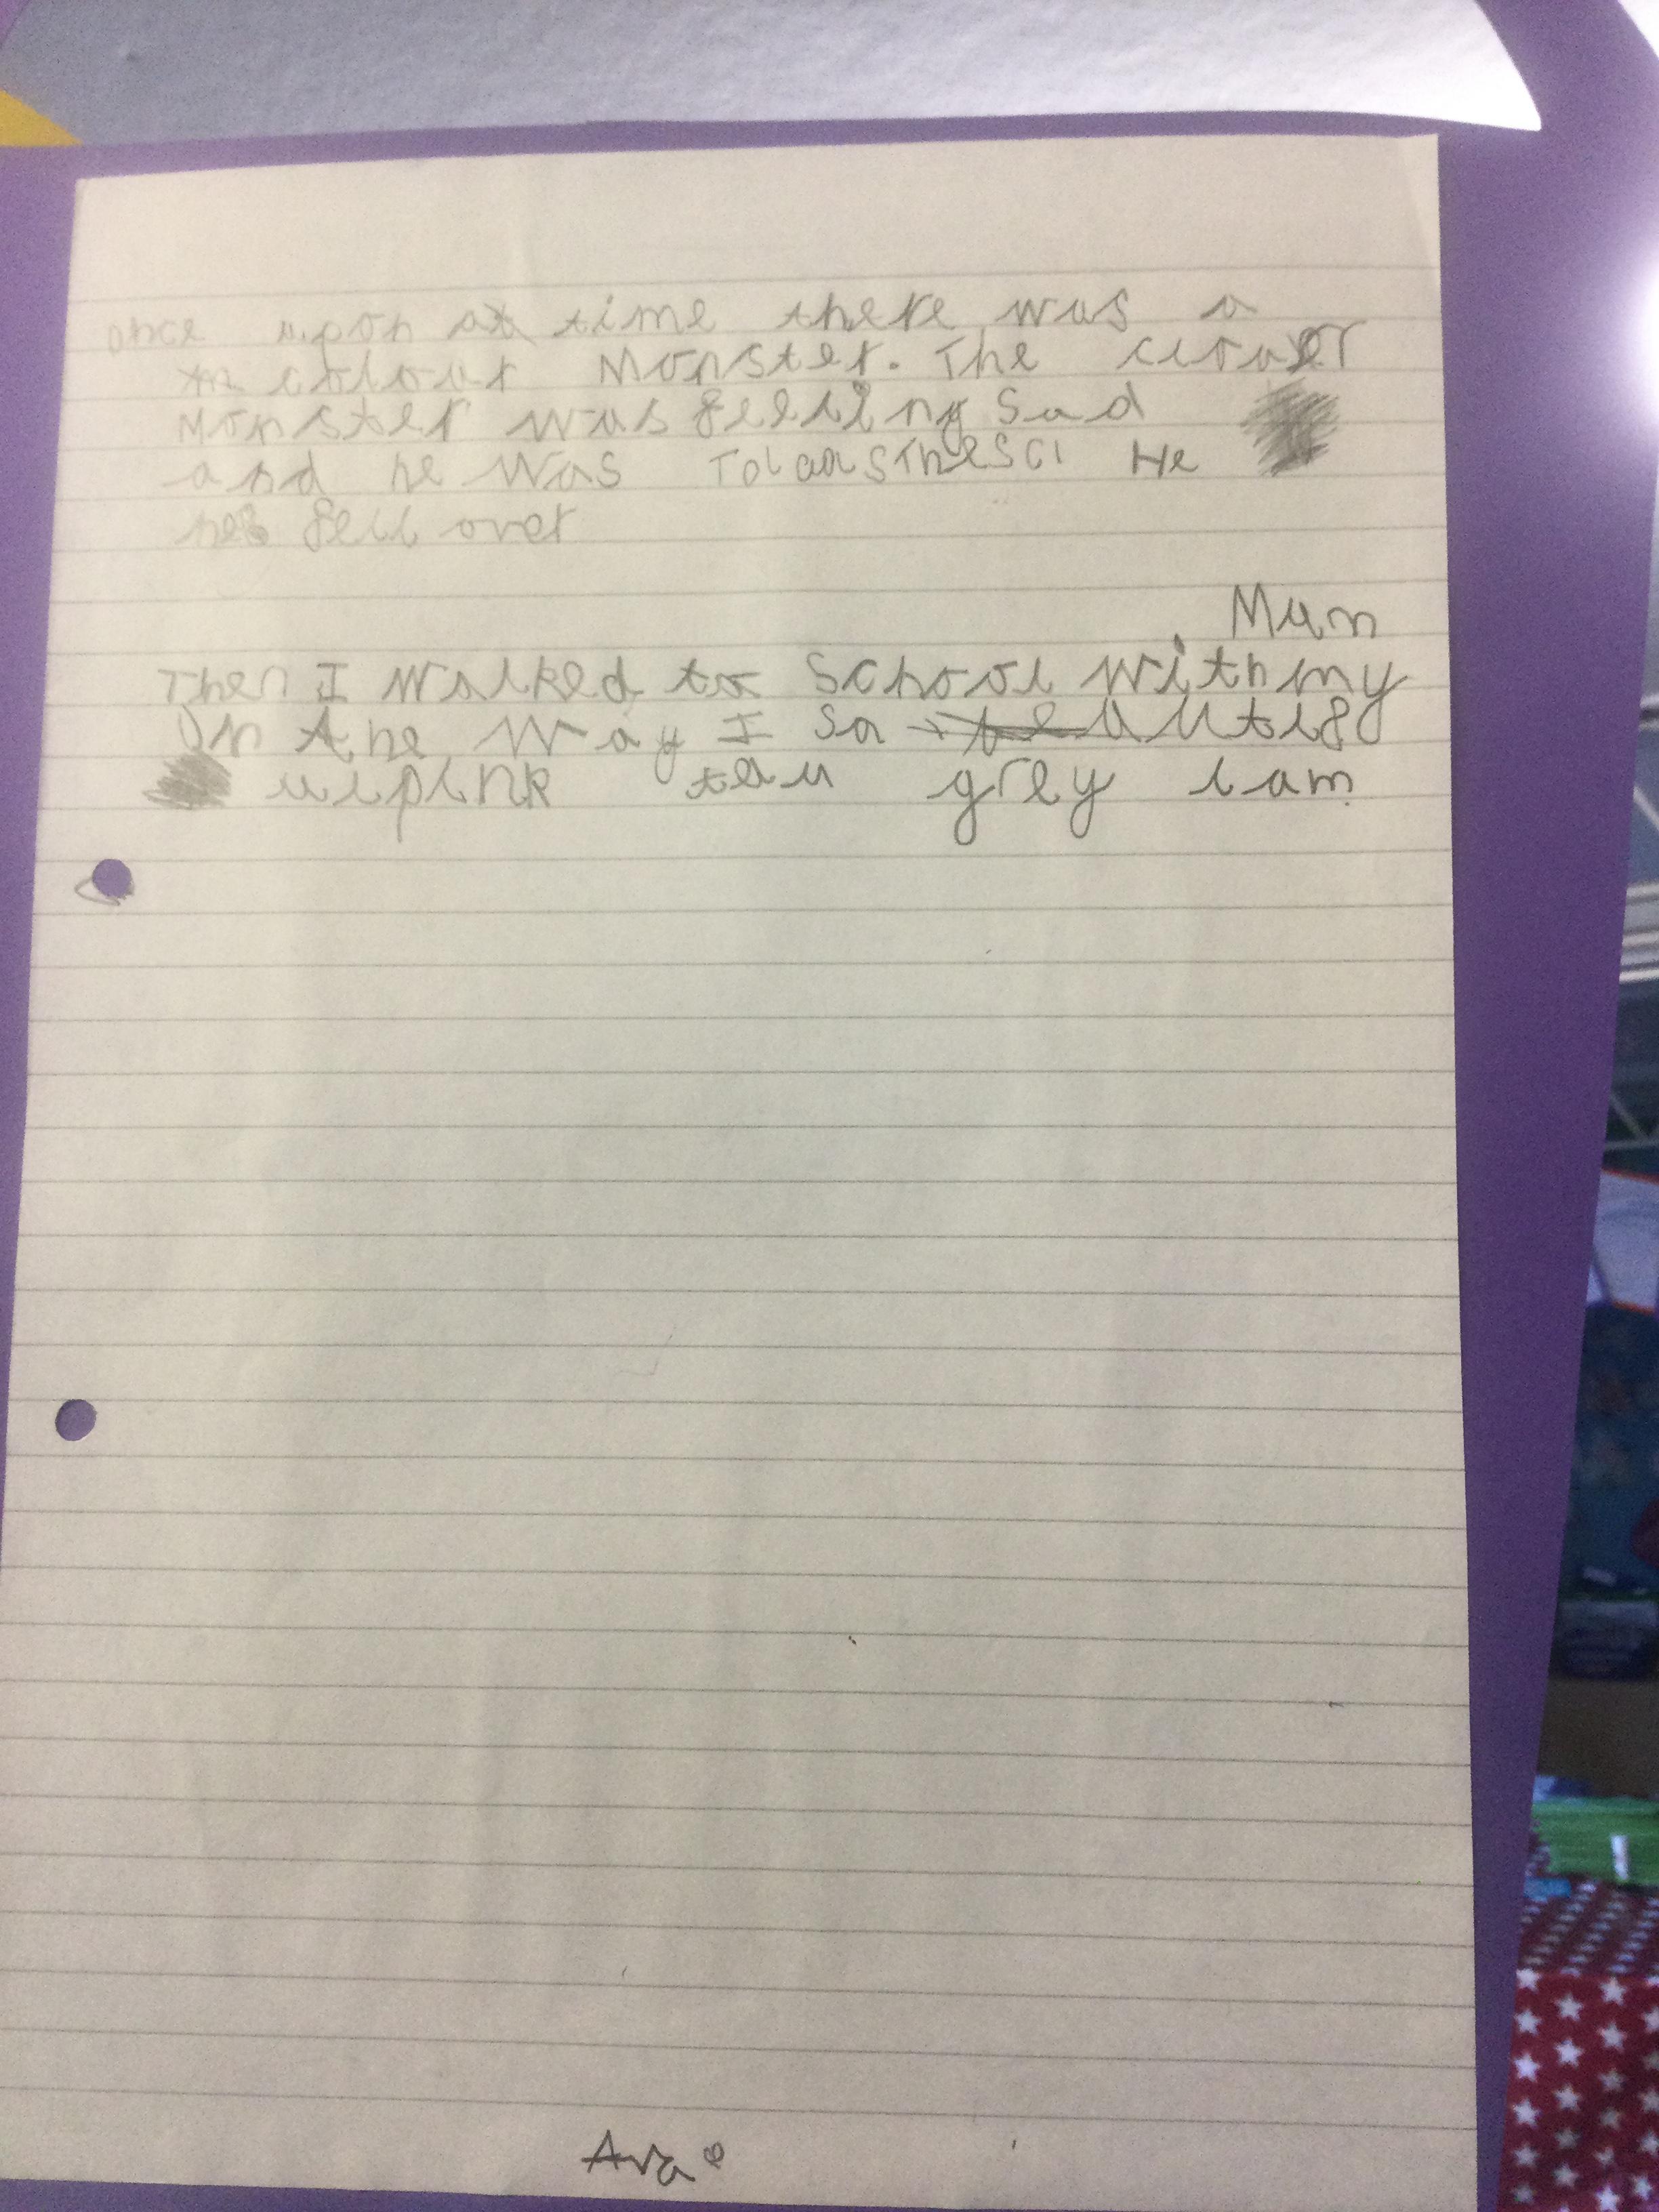 once upon a time there was a
colour Monster. The clouer
Monster was felling sad
and he was He
he fell over
Mum
Then I walked to School with my
On the way I sa
pink grey
Ava